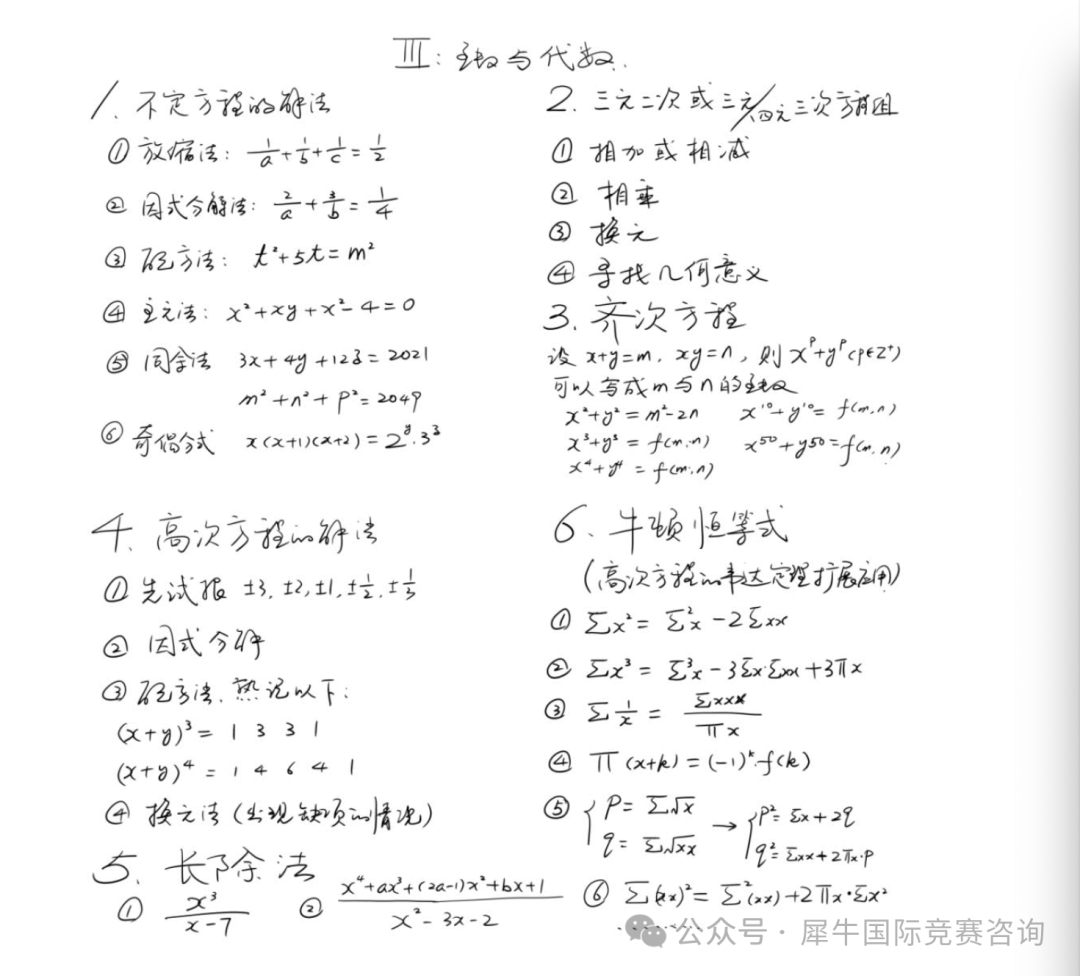 III: 函数与代数.
1. 不定方程的解法
① 放缩法: 1/a + 1/b + 1/c = 1/2
② 因式分解法: 2/a + 3/b = 1/4
③ 配方法: t²+5t=m²
④ 主元法: x²+xy+x²-4=0
⑤ 同余法 3x+4y+123=2021
m²+n²+p²=2049
⑥ 奇偶分式 x(x+1)(x+2)=2^y·3^z
2. 三元二次或三元/四元三次方程组
① 相加或相减
② 相乘
③ 换元
④ 寻找几何意义
3. 齐次方程
设 x+y=m, xy=n, 则 x^p+y^p (p∈Z⁺)
可以写成m与n的函数
x²+y²=m²-2n x¹⁰+y¹⁰=f(m,n)
x³+y³=f(m,n) x⁵⁰+y50=f(m,n)
x⁴+y⁴=f(m,n)
4. 高次方程的解法
① 先试根 ±3, ±2, ±1, ±1/2, ±1/3
② 因式分解
③ 配方法, 熟记以下:
(x+y)³= 1 3 3 1
(x+y)⁴= 1 4 6 4 1
④ 换元法 (出现缺项的情况)
5. 长除法
① x³/(x-7) ② (x⁴+ax³+(2a-1)x²+bx+1)/(x²-3x-2)
6. 牛顿恒等式
(高次方程的韦达定理扩展应用)
① Σx²= Σ²x -2Σxx
② Σx³= Σ³x -3Σx·Σxx +3πx
③ Σ1/x = Σxxx/πx
④ π(x+k)=(-1)^k·f(k)
⑤ { p= Σ√x q= Σ√xx → { p²= Σx+2q q²= Σxx+2πx·p
⑥ Σ(xx)²= Σ²(xx)+2πx·Σx²
公众号·犀牛国际竞赛咨询